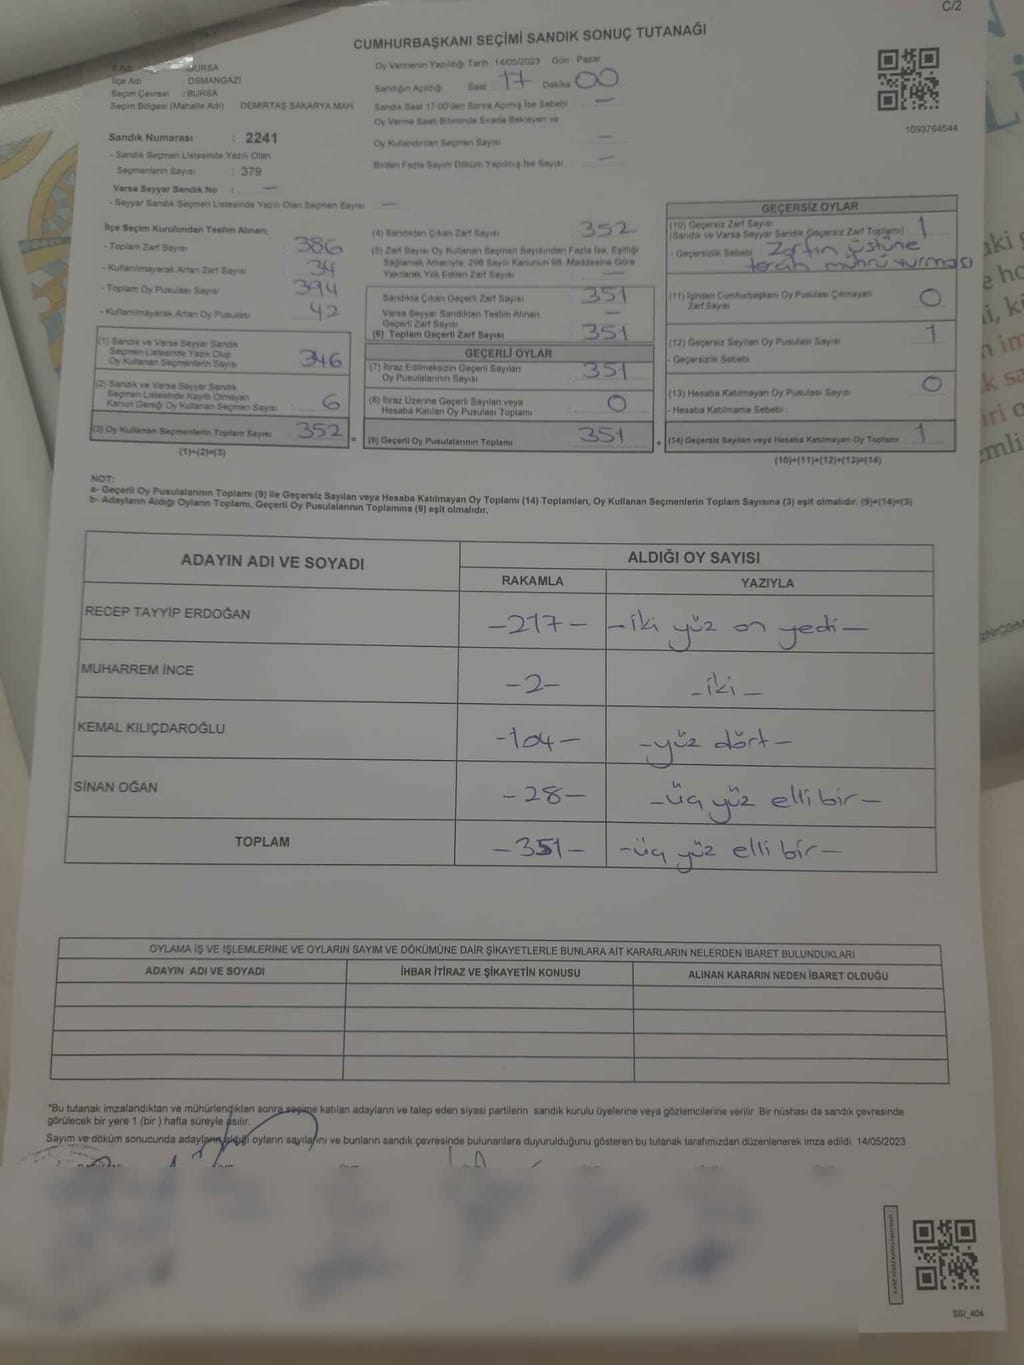 C/2
CUMHURBAŞKANI SEÇİMİ SANDIK SONUÇ TUTANAĞI
BURSA
İlçe Adı OSMANGAZİ
Seçim Çevresi : BURSA
Seçim Bölgesi (Mahalle Adı) DEMİRTAŞ SAKARYA MAH.
Sandık Numarası : 2241
- Sandık Seçmen Listesinde Yazılı Olan
Seçmenlerin Sayısı : 379
Varsa Seyyar Sandık No : —
- Seyyar Sandık Seçmen Listesinde Yazılı Olan Seçmen Sayısı —
Oy Vermenin Yapıldığı Tarih : 14/05/2023 Gün : Pazar
Sandığın Açıldığı Saat 17 Dakika 00
Sandık Saat 17:00'den Sonra Açılmış İse Sebebi —
Oy Verme Saati Bitiminde Sırada Bekleyen ve
Oy Kullandırılan Seçmen Sayısı —
Birden Fazla Sayım Döküm Yapılmış İse Sayısı —
1093764544
İlçe Seçim Kurulundan Teslim Alınan;
- Toplam Zarf Sayısı 386
- Kullanılmayarak Artan Zarf Sayısı 34
- Toplam Oy Pusulası Sayısı 394
- Kullanılmayarak Artan Oy Pusulası 42
(1) Sandık ve Varsa Seyyar Sandık
Seçmen Listesinde Yazılı Olup
Oy Kullanan Seçmenlerin Sayısı 346
(2) Sandık ve Varsa Seyyar Sandık
Seçmen Listesinde Kayıtlı Olmayan
Kanun Gereği Oy Kullanan Seçmen Sayısı 6
(3) Oy Kullanan Seçmenlerin Toplam Sayısı 352
(1)+(2)=(3)
(4) Sandıktan Çıkan Zarf Sayısı 352
(5) Zarf Sayısı Oy Kullanan Seçmen Sayısından Fazla İse, Eşitliği
Sağlamak Amacıyla 298 Sayılı Kanunun 98. Maddesine Göre
Yakılarak Yok Edilen Zarf Sayısı —
Sandıkta Çıkan Geçerli Zarf Sayısı 351
Varsa Seyyar Sandıkten Teslim Alınan
Geçerli Zarf Sayısı —
(6) Toplam Geçerli Zarf Sayısı 351
GEÇERLİ OYLAR
(7) İtiraz Edilmeksizin Geçerli Sayılan
Oy Pusulalarının Sayısı 351
(8) İtiraz Üzerine Geçerli Sayılan veya
Hesaba Katılan Oy Pusulası Toplamı 0
(9) Geçerli Oy Pusulalarının Toplamı 351
GEÇERSİZ OYLAR
(10) Geçersiz Zarf Sayısı
(Sandık ve Varsa Seyyar Sandık Geçersiz Zarf Toplamı) 1
- Geçersizlik Sebebi Zarfın üstüne
tercih mührü vurması
(11) İçinden Cumhurbaşkanı Oy Pusulası Çıkmayan
Zarf Sayısı 0
(12) Geçersiz Sayılan Oy Pusulası Sayısı 1
- Geçersizlik Sebebi
(13) Hesaba Katılmayan Oy Pusulası Sayısı 0
- Hesaba Katılmama Sebebi :
(14) Geçersiz Sayılan veya Hesaba Katılmayan Oy Toplamı 1
(10)+(11)+(12)+(13)=(14)
NOT:
a- Geçerli Oy Pusulalarının Toplamı (9) ile Geçersiz Sayılan veya Hesaba Katılmayan Oy Toplamı (14) Toplamları, Oy Kullanan Seçmenlerin Toplam Sayısına (3) eşit olmalıdır. (9)+(14)=(3)
b- Adayların Aldığı Oyların Toplamı, Geçerli Oy Pusulalarının Toplamına (9) eşit olmalıdır.
ADAYIN ADI VE SOYADI ALDIĞI OY SAYISI
RAKAMLA YAZIYLA
RECEP TAYYİP ERDOĞAN -217- -iki yüz on yedi-
MUHARREM İNCE -2- -iki-
KEMAL KILIÇDAROĞLU -104- -yüz dört-
SİNAN OĞAN -28- -üç yüz elli bir-
TOPLAM -351- -üç yüz elli bir-
OYLAMA İŞ VE İŞLEMLERİNE VE OYLARIN SAYIM VE DÖKÜMÜNE DAİR ŞİKAYETLERLE BUNLARA AİT KARARLARIN NELERDEN İBARET BULUNDUKLARI
ADAYIN ADI VE SOYADI İHBAR İTİRAZ VE ŞİKAYETİN KONUSU ALINAN KARARIN NEDEN İBARET OLDUĞU
*Bu tutanak imzalandıktan ve mühürlendikten sonra seçime katılan adayların ve talep eden siyasi partilerin sandık kurulu üyelerine veya gözlemcilerine verilir. Bir nüshası da sandık çevresinde
görülecek bir yere 1 (bir) hafta süreyle asılır.
Sayım ve döküm sonucunda adayların aldığı oyların sayılarını ve bunların sandık çevresinde bulunanlara duyurulduğunu gösteren bu tutanak tarafımızdan düzenlenerek imza edildi. 14/05/2023
SSI_404